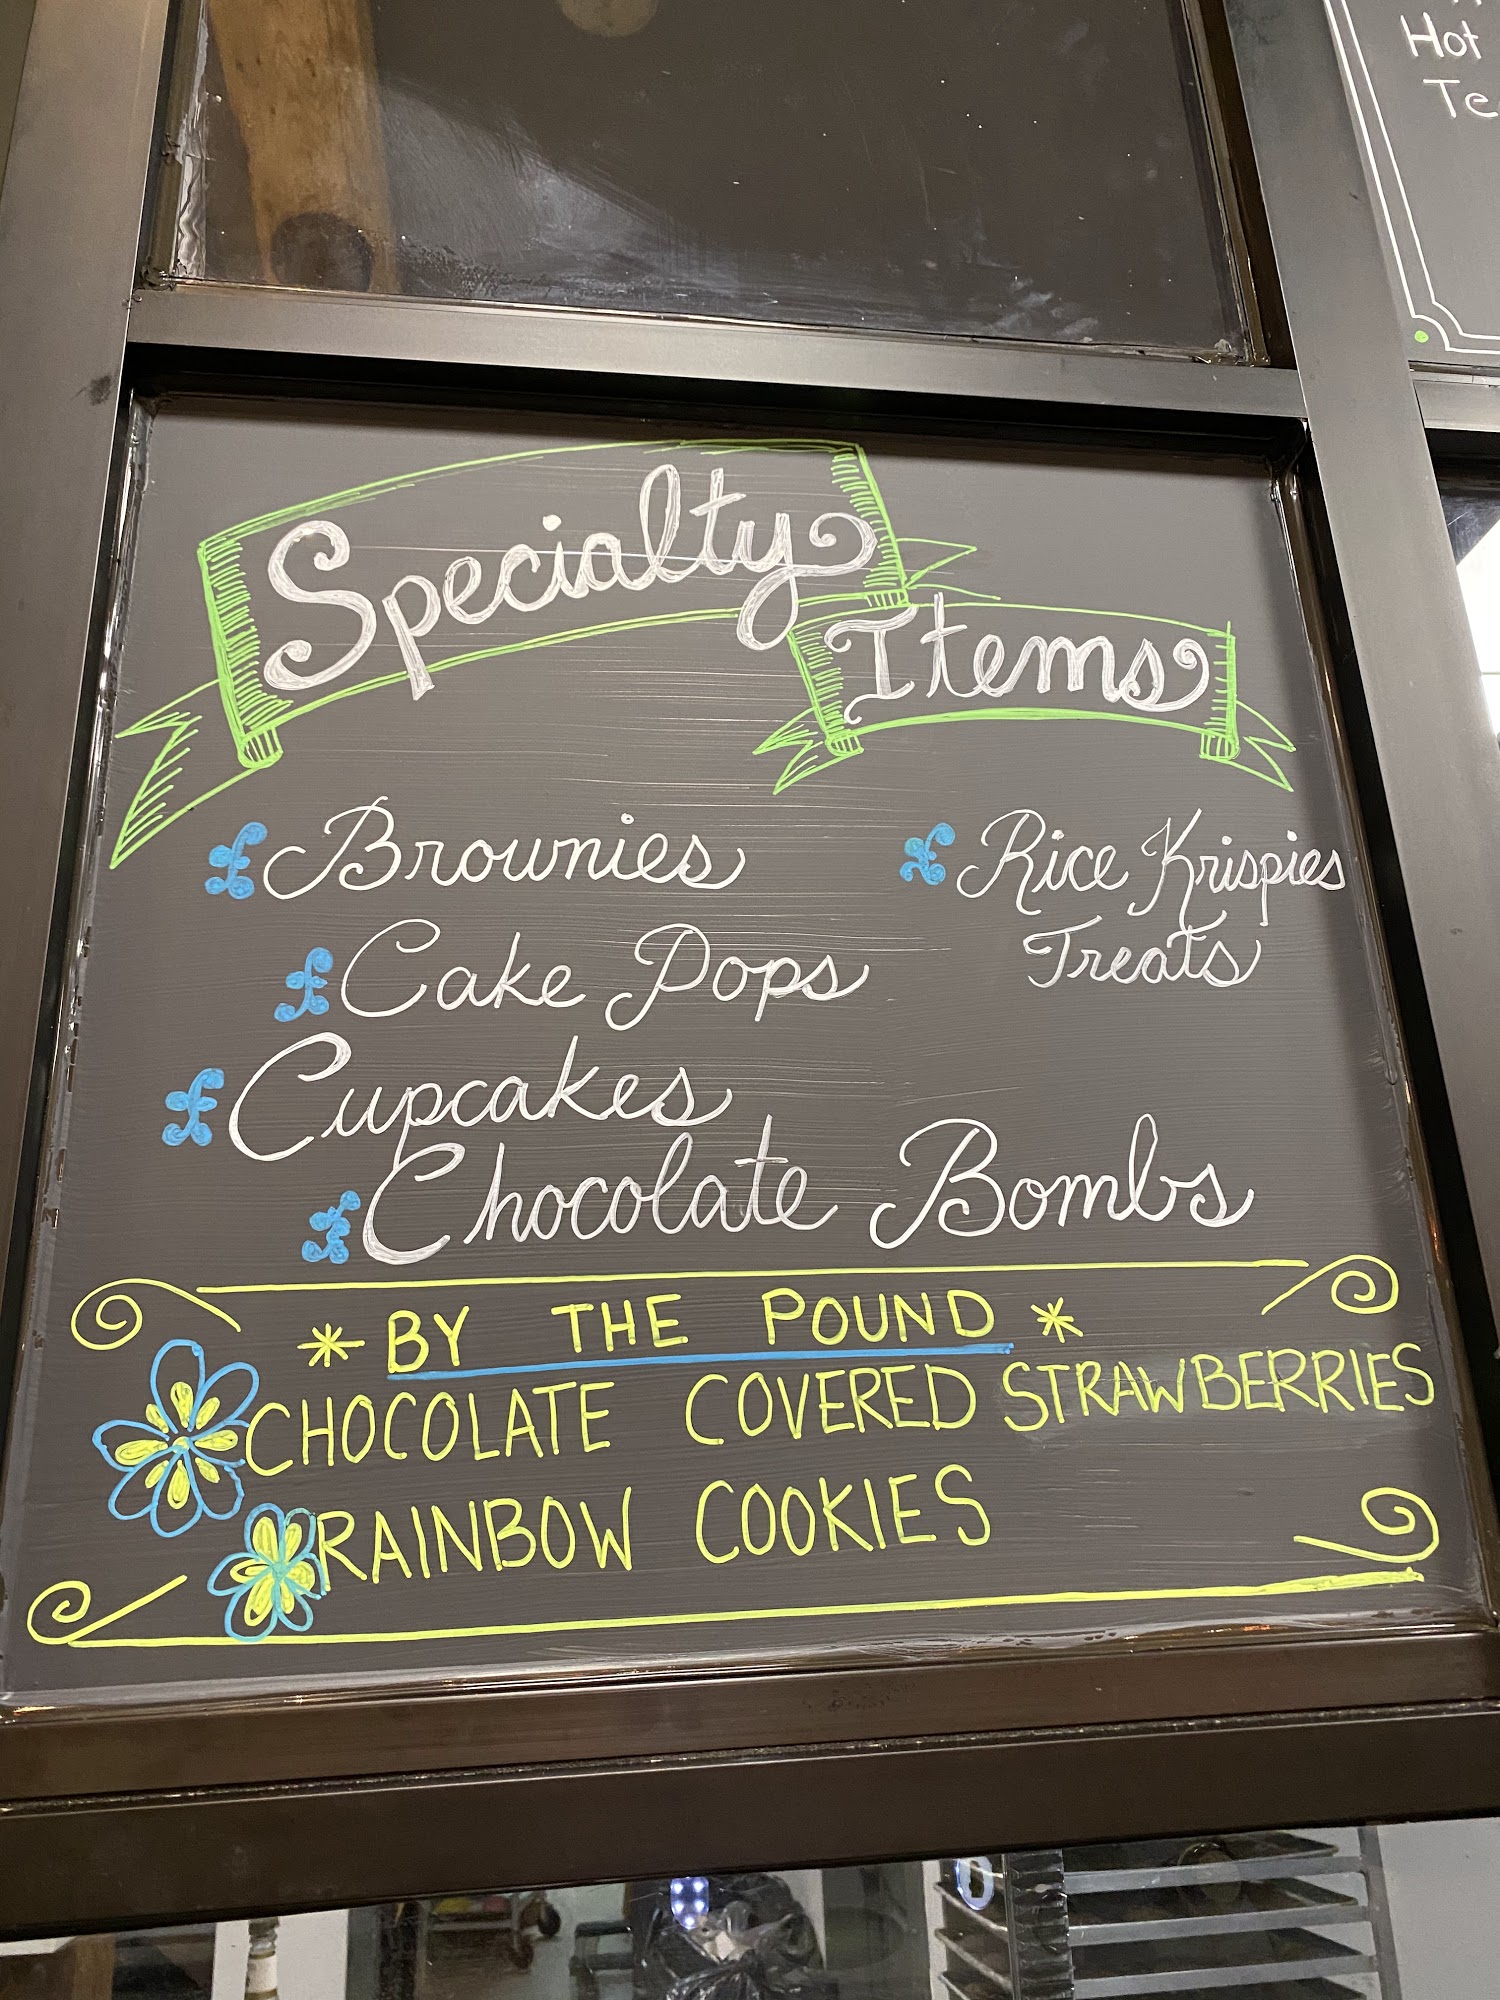 Hot
Specialty
Items
Brownies
Rice Krispies
Treats
Cake Pops
Cupcakes
Chocolate Bombs
* BY THE POUND *
CHOCOLATE COVERED STRAWBERRIES
RAINBOW COOKIES